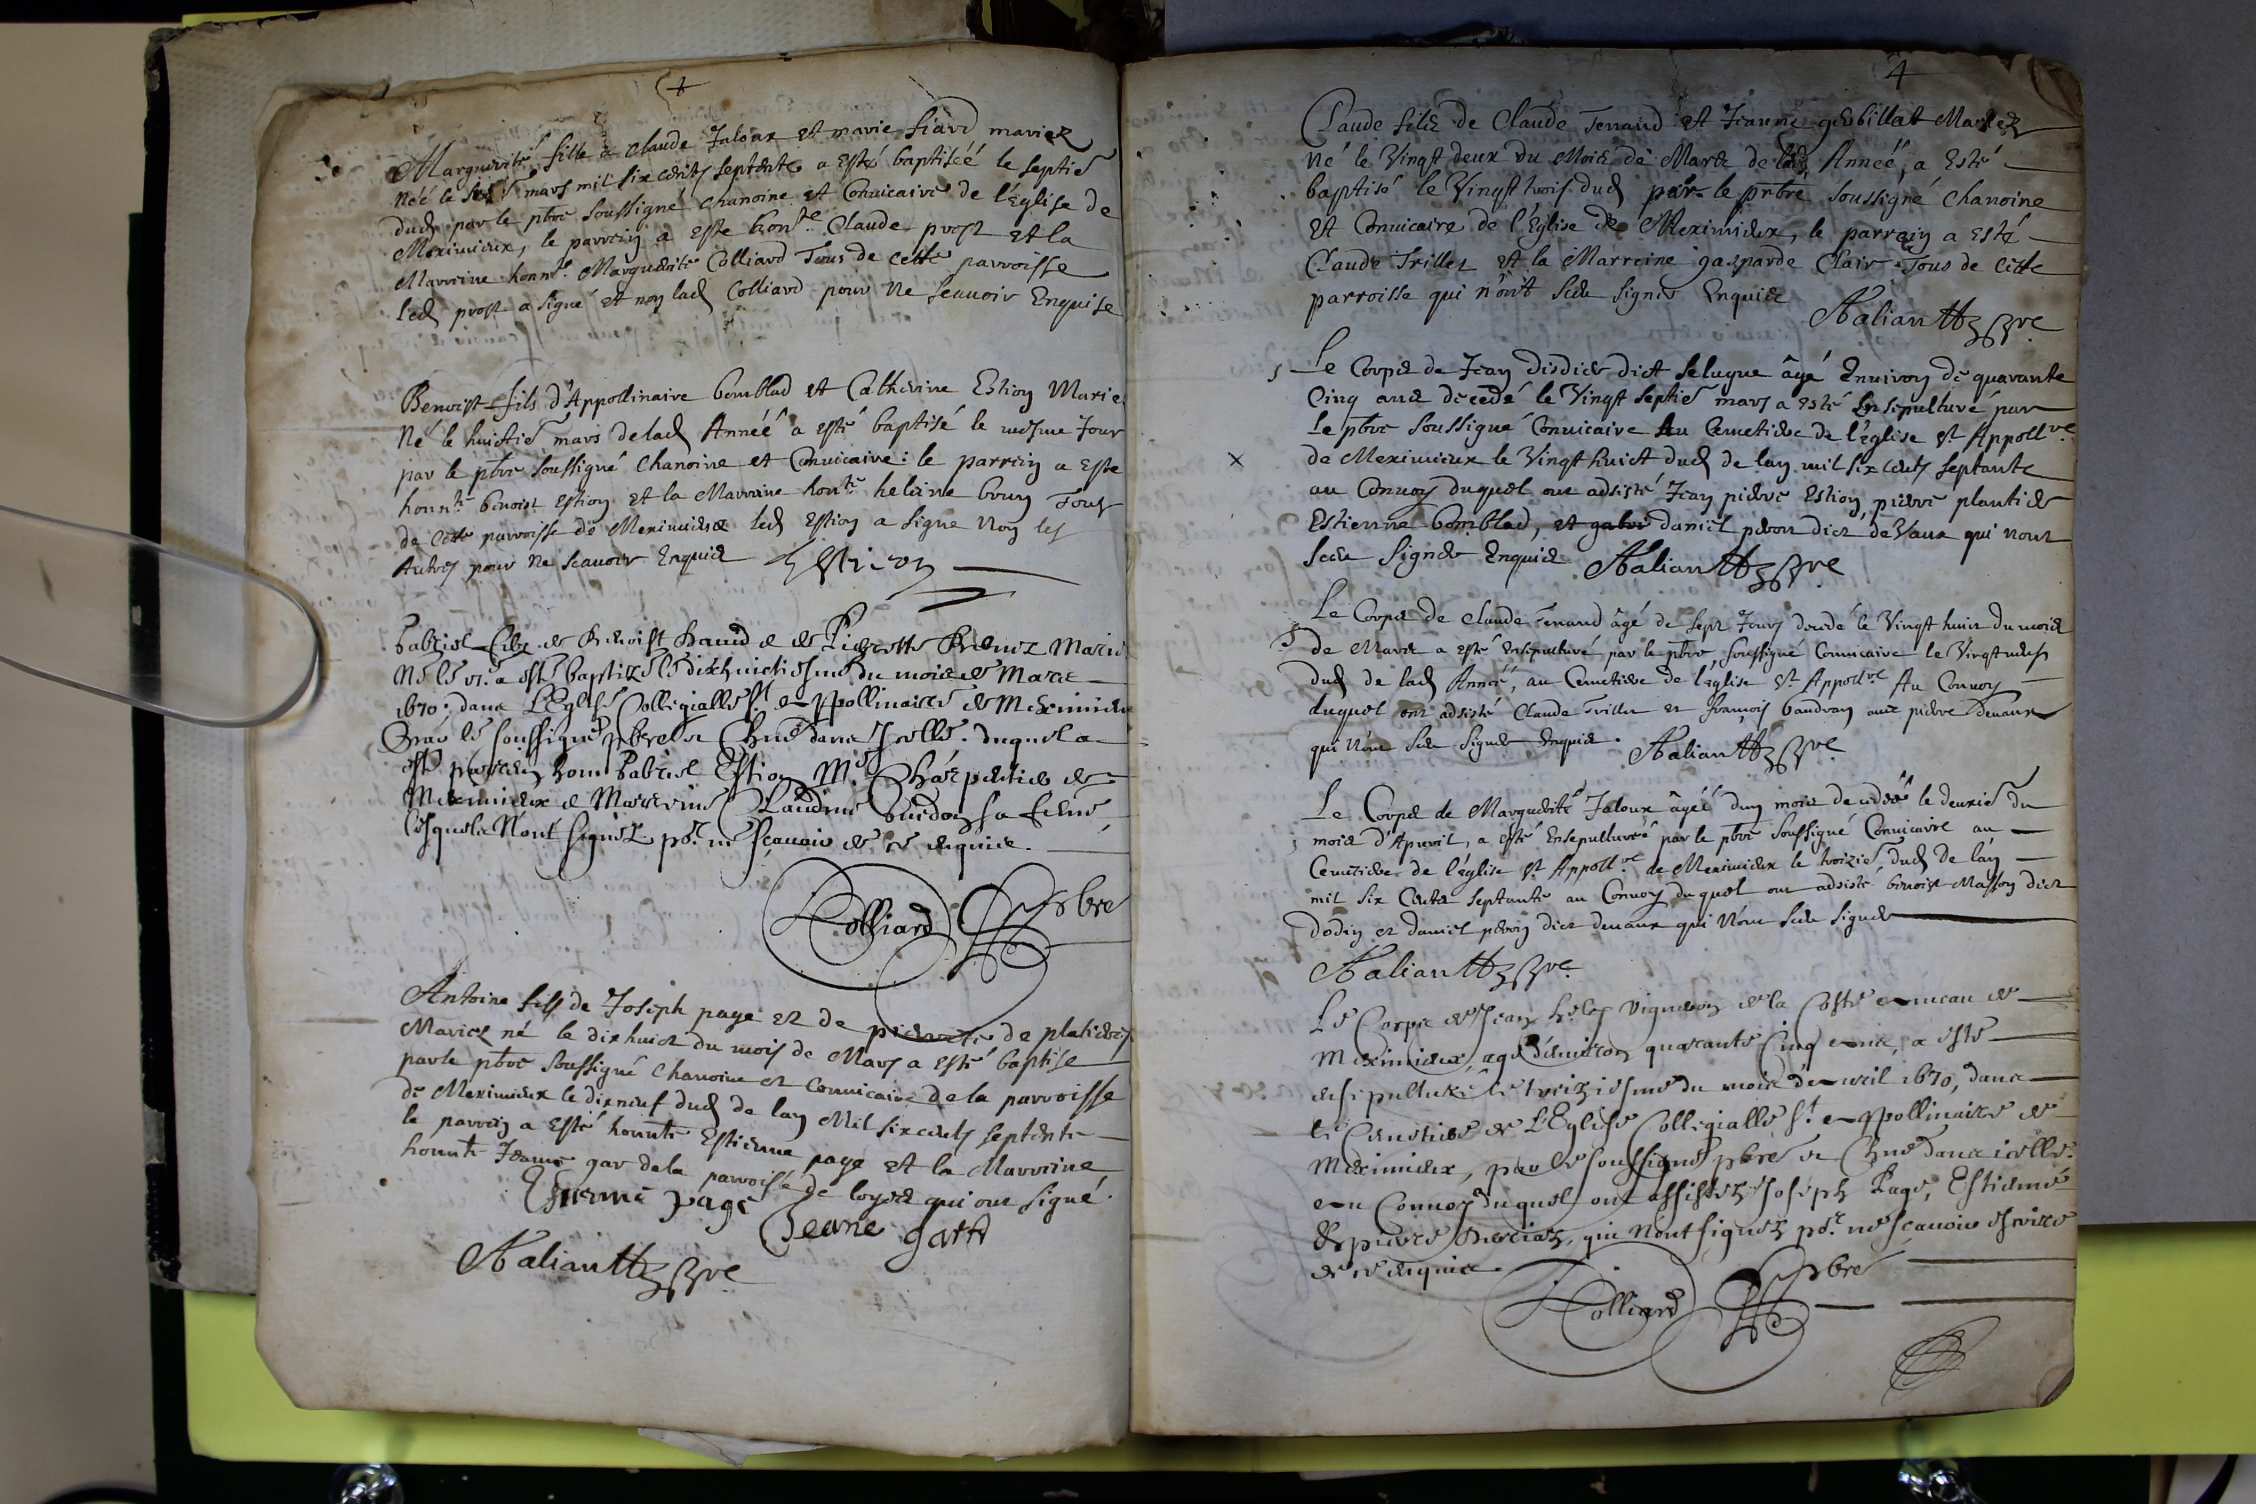 Margueritte fille à Claude Jaloux et marie siard mariez
Née le mars mil six cents septente a Esté baptiséé le septie
dud par le pbre soussigné chanoine et Convicaire de l'Eglise de
Meximieux, le parrein a este hon.te Claude prost et la
Marreine honn.te Margueritte Colliard Tous de cette parroisse
led prost a signé et non lad Colliard pour Ne scauoir Enquise
Benoist fils d'Appollinaire bomblad et Catherine Estion Marie
Né le huictie mars delad Annéé a esté baptisé le mesme Jour
par le pbre soussigné Chanoine et Convicaire : le parrein a Este
honn.te benoist estion et la Marreine hon.te heleine brun Tous
de cette parroisse de Meximieux led Estion a signe Non les
Autres pour Ne scauoir Enquis Estion
Gabriel filz de Benoist & de Pierrette Mariez
Né le a esté baptizé le dixhuictiesme du mois de Mars
1670. dans L'Eglise Collegialle S.t Appollinaire de Meximieux
Par le soussigné pbre et Chne dans Icelle. duquel a
esté parrein honn Gabriel Estion M.e Charpentier de
Meximieux & Marreine Claudine Guidon sa feme
lesquels N'ont signéz po.r ne scauoir de ce enquis.
Colliard pbre
Antoine fils de Joseph page et de pierrette de platieres
Mariez né le dixhuict du mois de Mars a esté baptisé
par le pbre soussigné chanoine et convicaire de la parroisse
de Meximieux le dixneuf dud de lan Mil six cents septente
le parrein a Esté honn.te Estienne page et la Marreine
honn.te Jeanne gar dela parroisse de loyes qui ont signé.
Estienne page
Jeane gart
Aalianttz pbre
4
Claude filz de Claude Terrand et Jeanne gerbillat Mariez
Né le Vingt deux du Mois de Mars de lad Annéé, a Esté
baptisé le Vingt trois dud par le prbre soussigné Chanoine
et Convicaire de l'Eglise de Meximieux, le parrein a Esté
Claude Trillet et la Marreine gasparde Clair Tous de Cette
parroisse qui n'ont sceu signer Enquis
Aalianttz pbre
Le Corps de Jean Disdier dict seluque âgé Enuiron de quarante
Cinq ans decedé le Vingt septie mars a esté Ensepulturé par
Le pbre soussigné Convicaire Au Cemetiere de l'eglise S.t Appoll.re
de Meximieux le Vingt huict dud de lan mil six cents septante
au Convoy duquel ont adsisté Jean pierre Estion, pierre plantier
Estienne bomblad, et daniel peron dict de Vaux qui n'ont
sceu signer Enquis Aalianttz pbre
Le Corps de Claude Terrand âgé de sept Jours decedé le Vingt huict du mois
de Mars a esté ensepulturé par le pbre soussigné Convicaire le Vingt neuf
dud de lad Annéé, au Cemetiere de leglise S.t Appoll.re Au Convoy
duquel ont adsisté Claude Trillet et françois baudran auec pierre deuaux
qui N'ont sceu signer Enquis. Aalianttz pbre
Le Corps de Margueritte Jaloux âgéé d'un mois decedéé le deuxie du
mois d'Apuril, a esté Ensepulturéé par le pbre soussigné Convicaire au
Cemetiere de l'église S.t Appoll.re de Meximieux le troizie dud de lan
mil six Cents septante au Convoy duquel ont adsisté benoist Masson dict
dodin et daniel peron dict deuaux qui N'ont sceu signer
Aalianttz pbre
Le Corps de Jean vigneron de la Coste de
Meximieux, agé d'enuiron quarante Cinq ans, a esté
ensepulturé le treiziesme du mois d'Auril 1670, dans
le Cemetiere de L'Eglise Collegialle S.t Appollinaire de
Meximieux, par le soussigné pbre et Chne dans icelle.
au Convoy duquel ont assistéz Joseph Page, Estienne
& pierre , qui N'ont signéz po.r ne scauoir escrire
de ce enquis
Colliard pbre